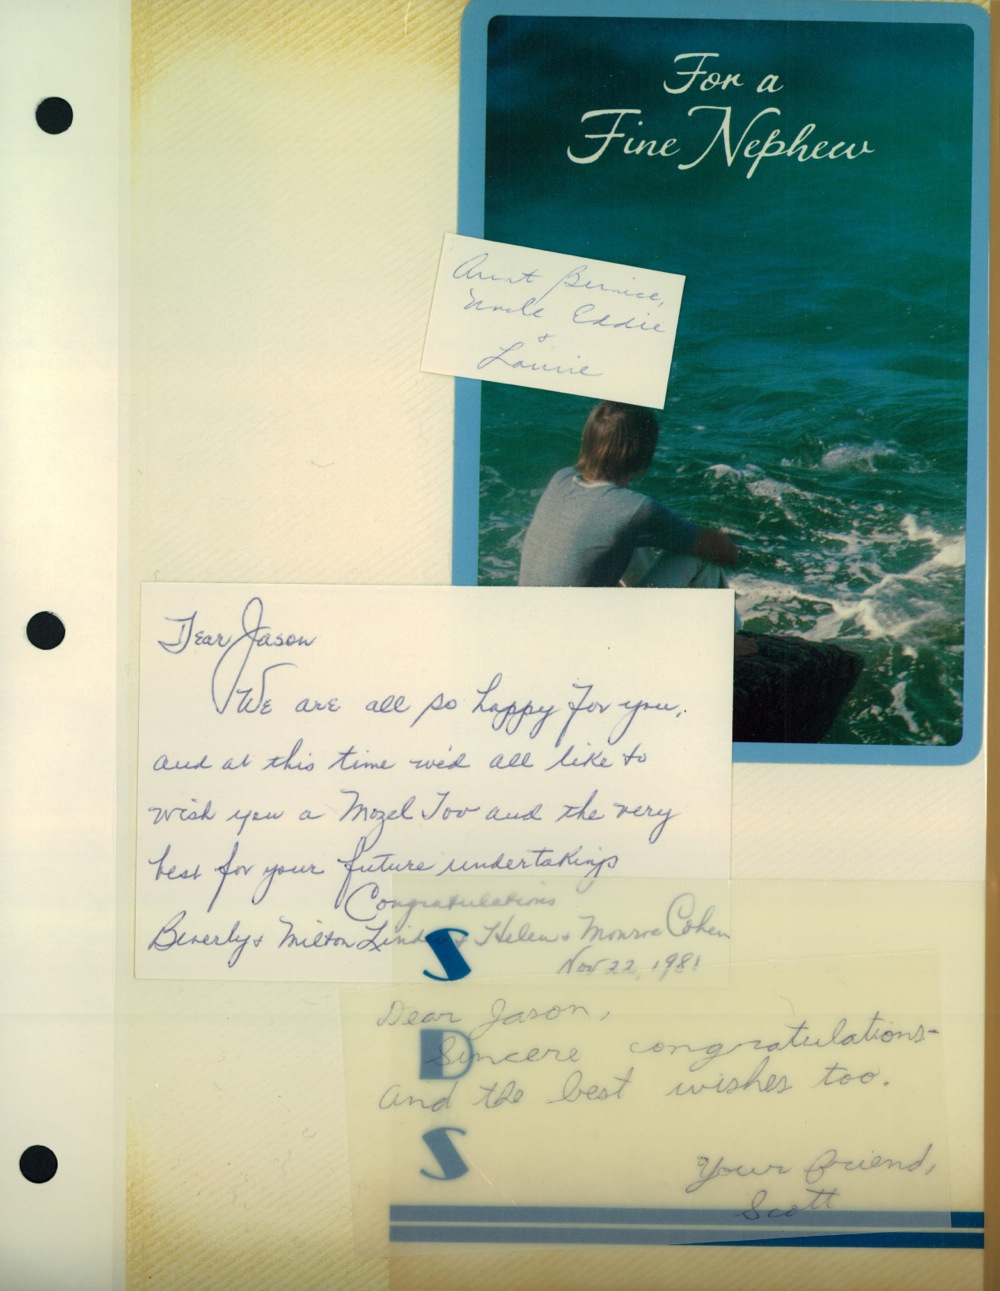 For a
Fine Nephew
Aunt Bernice,
Uncle Eddie
+
Laurie
Dear Jason
We are all so happy for you,
and at this time we'd all like to
wish you a Mozel Tov and the very
best for your future undertakings
Congratulations
Beverly + Milton + Helen + Monroe Cohen
Nov 22, 1981
S
D
S
Dear Jason,
Sincere congratulations-
and the best wishes too.
Your friend,
Scott